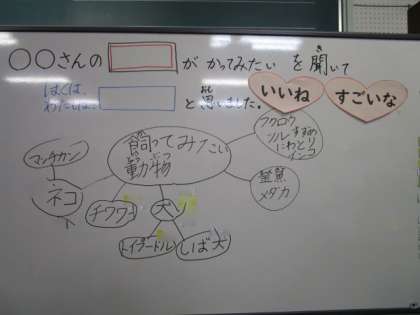 〇〇さんの
が かってみたい を聞いて
き
ぼくは、
わたしは、
と思いました。
おも
いいね
すごいな
飼ってみたい
動物
どうぶつ
マンチカン
ネコ
チワワ
犬
トイプードル
しば犬
フクロウ
ツル すずめ
にわとり
インコ
金魚
メダカ